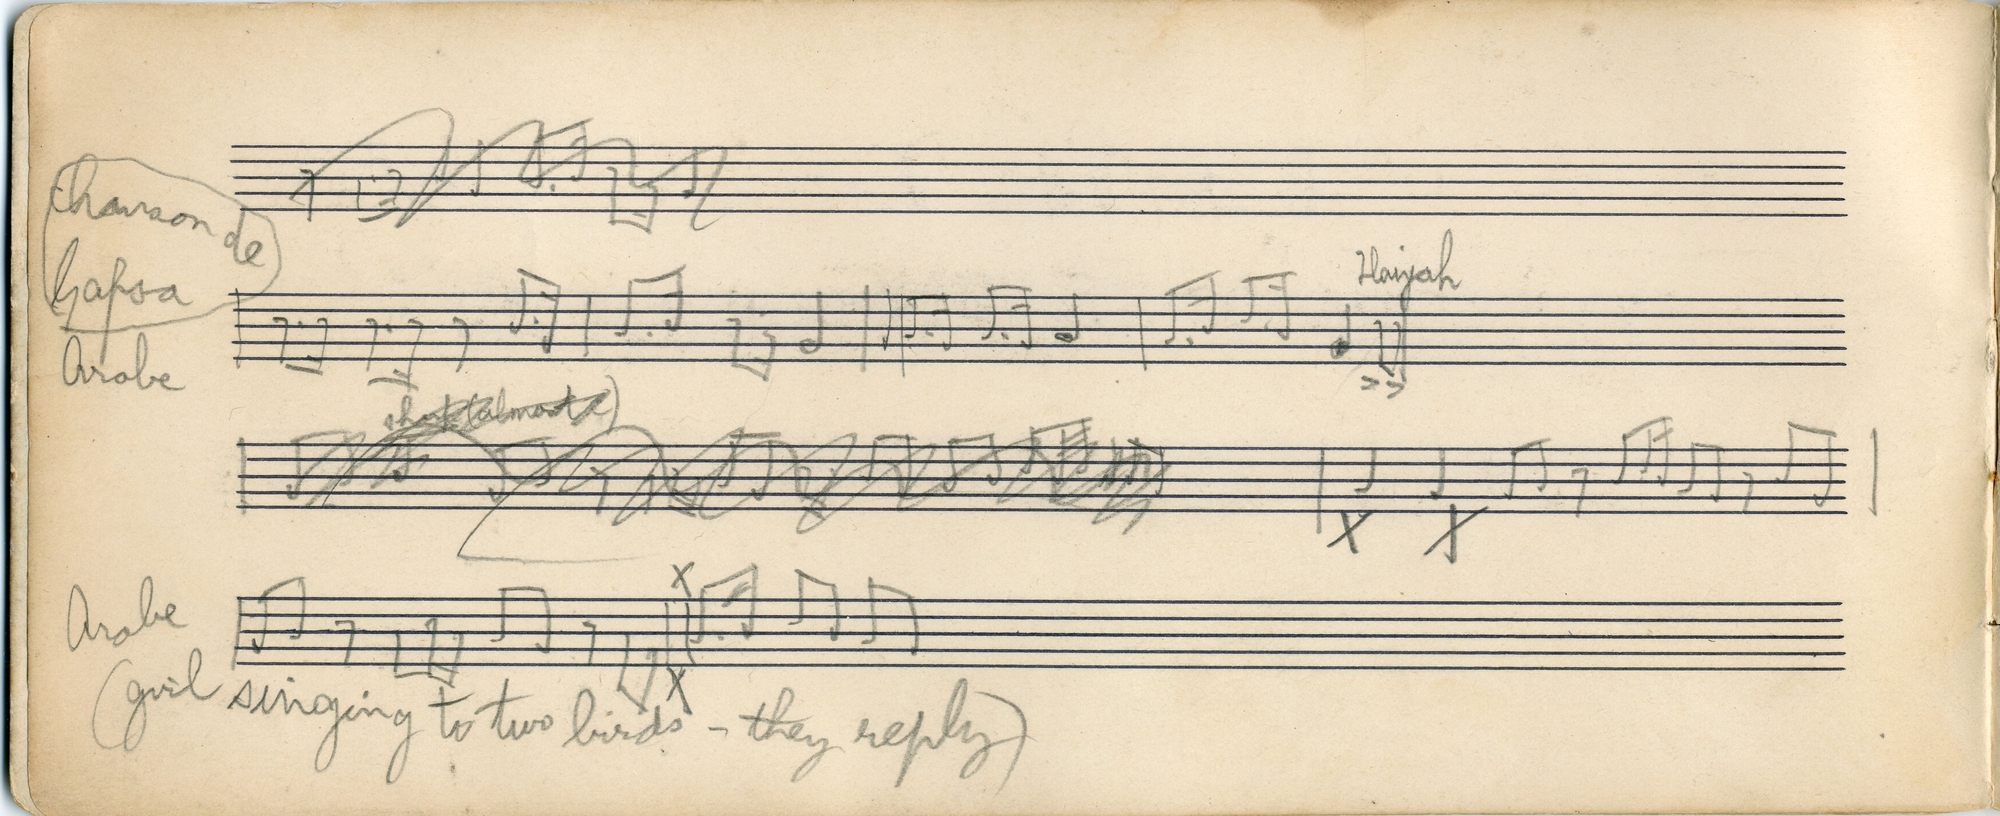 Chanson de
Gafsa
Arabe
Haiyah
short (almost)
X X
Arabe
X
X
(girl singing to two birds - they reply)